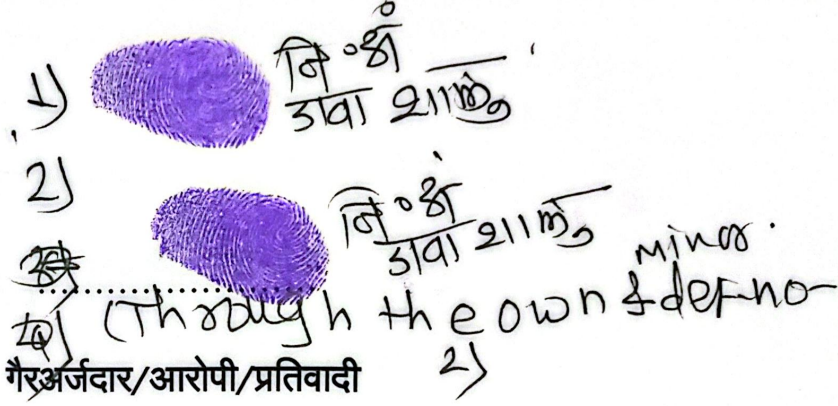 1) नि.अं
डावा शालु
2)
नि.अं
डावा शालु
minor.
(Through the own & def-no-
2)
गैरअर्जदार/आरोपी/प्रतिवादी